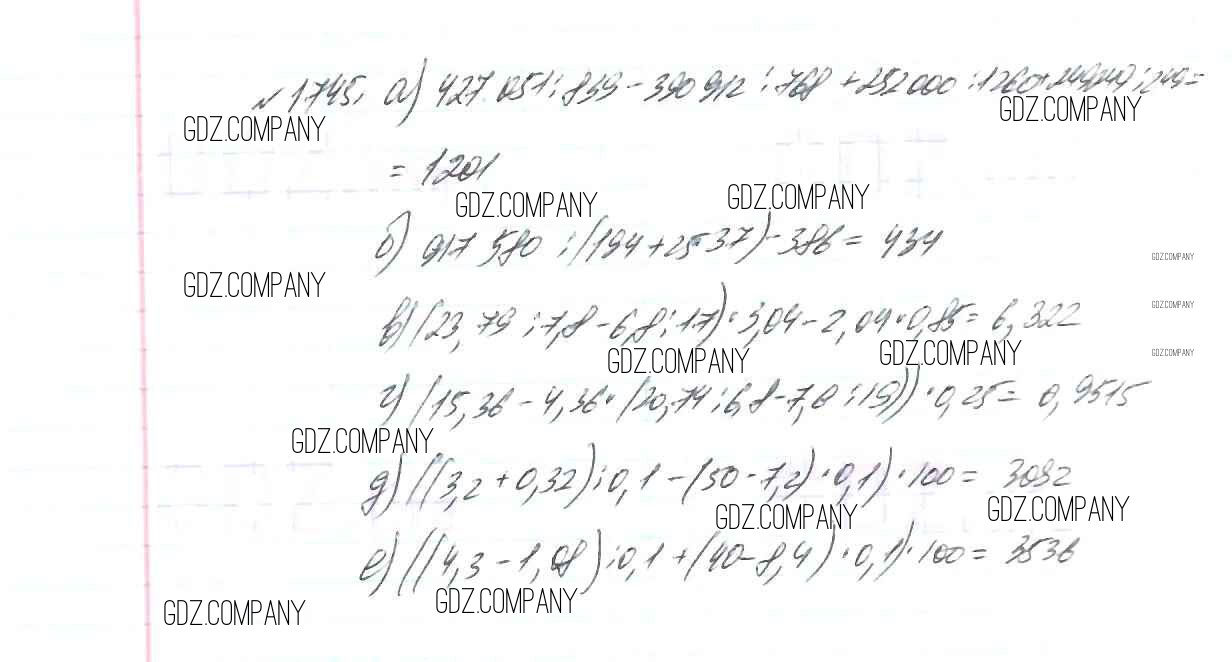 № 1745. а) 427 051 : 839 - 390 912 : 768 + 252 000 : 1260 + 249249 : 249 =
GDZ.COMPANY GDZ.COMPANY
= 1201
GDZ.COMPANY GDZ.COMPANY
б) 917 580 : (194 + 25·37) - 386 = 434
GDZ.COMPANY GDZ.COMPANY
в) (23,79 : 7,8 - 6,8 : 17) · 3,04 - 2,04 · 0,85 = 6,322
GDZ.COMPANY
GDZ.COMPANY GDZ.COMPANY GDZ.COMPANY
г) (15,36 - 4,36 · (20,74 : 6,8 - 7,6 : 19)) · 0,25 = 0,9515
GDZ.COMPANY
д) ((3,2 + 0,32) : 0,1 - (50 - 7,2) · 0,1) · 100 = 3092
GDZ.COMPANY GDZ.COMPANY
е) ((4,3 - 1,08) : 0,1 + (40 - 8,4) · 0,1) · 100 = 3536
GDZ.COMPANY GDZ.COMPANY